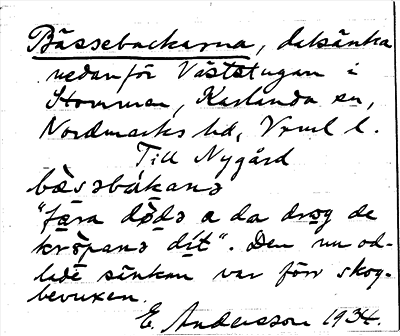 Bässebackarna, dalsänka
nedanför Väststugan i
Stommen, Karlanda sn,
Nordmarks hd, Vrml l.
Till Nygård
bæsəbakanə
"færa dødə a da drog de
kröpanə dit". Den nu od-
lade sänkan var förr skog-
bevuxen.
E. Andersson 1934.